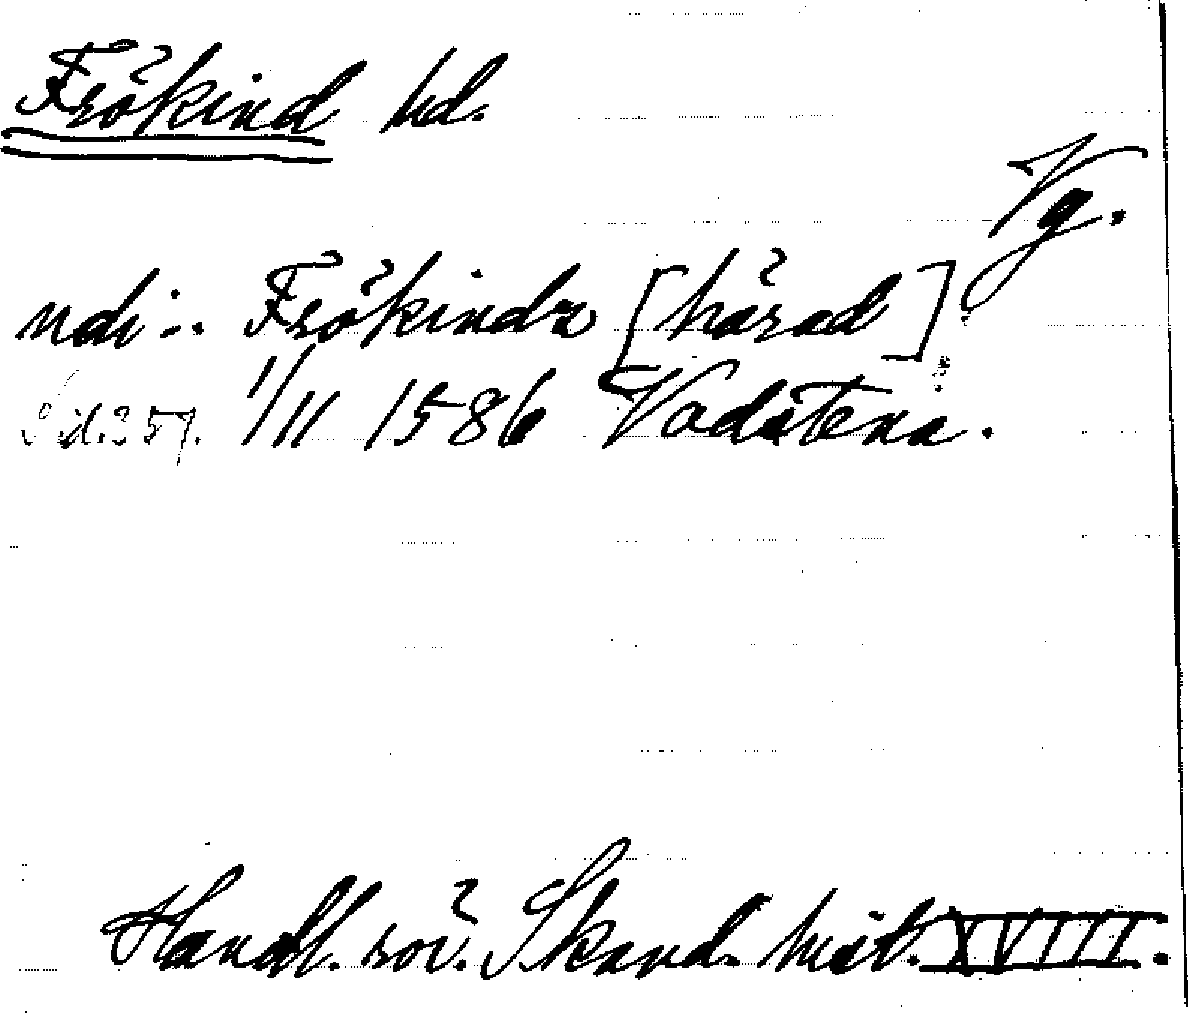 Frökind hd.
Vg.
ndi:. Frökindz [härad]
Sid. 257. 1/11 1586 Vadstena.
Handl. rör. Skand. hist. XVIII.